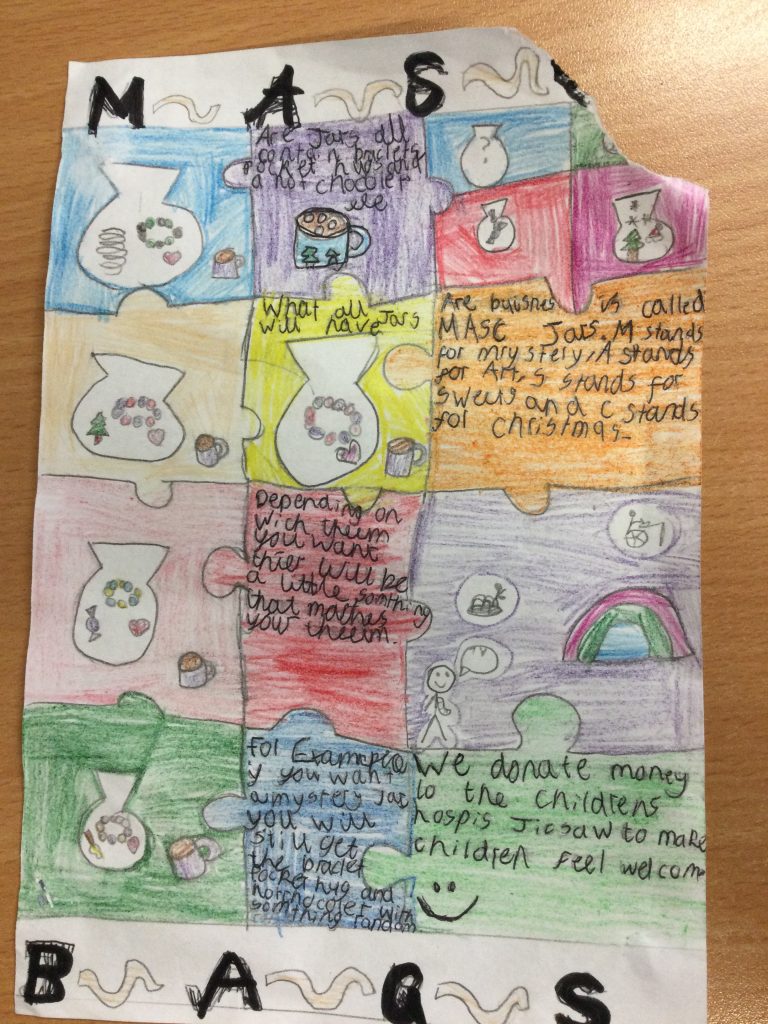 M A S
Are Jars all
contain braclets
pocket hugs and
a hot chocolet
?
What all Jars
will have
Are buisnes is called
MASC Jars. M stands
for mrystery, A stands
for Art, S stands for
sweets and c stands
for christmas.
Depending on
wich theem
you want
thier will be
a little somthing
that matches
your theem.
For Example
if you want
a mystery Jar
you will
still get
the braclet
pocket hug and
hotchocolet with
somthing random
We donate money
to the childrens
hospis Jigsaw to make
children feel welcome
B A G S